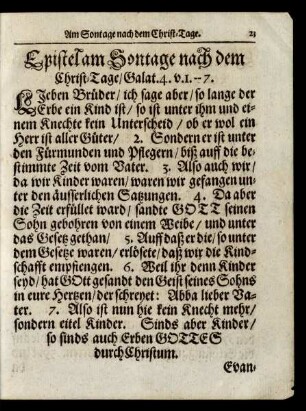 Am Sontage nach dem Christ-Tage. 23
Epistel am Sontage nach dem
Christ-Tage/ Galat. 4. v. 1. -- 7.
LIeben Brüder/ ich sage aber/ so lange der
Erbe ein Kind ist/ so ist unter ihm und ei-
nem Knechte kein Unterscheid/ ob er wol ein
Herr ist aller Güter/ 2. Sondern er ist unter
den Fürmunden und Pflegern/ biß auff die be-
stimmte Zeit vom Vater. 3. Also auch wir/
da wir Kinder waren/ waren wir gefangen un-
ter den äusserlichen Satzungen. 4. Da aber
die Zeit erfüllet ward/ sandte GOTT seinen
Sohn gebohren von einem Weibe/ und unter
das Gesetz gethan/ 5. Auff daß er die/ so unter
dem Gesetze waren/ erlösete/ daß wir die Kind-
schafft empfiengen. 6. Weil ihr denn Kinder
seyd/ hat GOtt gesandt den Geist seines Sohns
in eure Hertzen/ der schreyet: Abba lieber Va-
ter. 7. Also ist nun hie kein Knecht mehr/
sondern eitel Kinder. Sinds aber Kinder/
so sinds auch Erben GOTTES
durch Christum.
Evan-